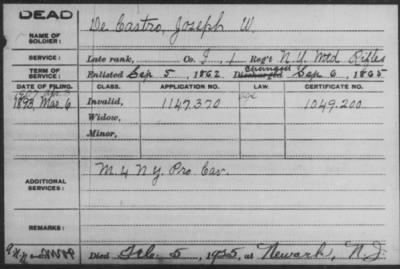 DEAD
NAME OF SOLDIER: De Castro, Joseph W.
SERVICE: Late rank, Co. I, 1 Reg't N.Y. Mtd Rifles
TERM OF SERVICE: Enlisted Sep 5, 1862 Discharged changed Sep 6, 1865
DATE OF FILING. CLASS. APPLICATION NO. LAW. CERTIFICATE NO.
1893, Mar. 6 Invalid, 1147.370 1049.200
Widow,
Minor,
ADDITIONAL SERVICES: M. 4 N.Y. Pro. Cav.
REMARKS:
Died Feb. 5, 1925, at Newark, N.J.